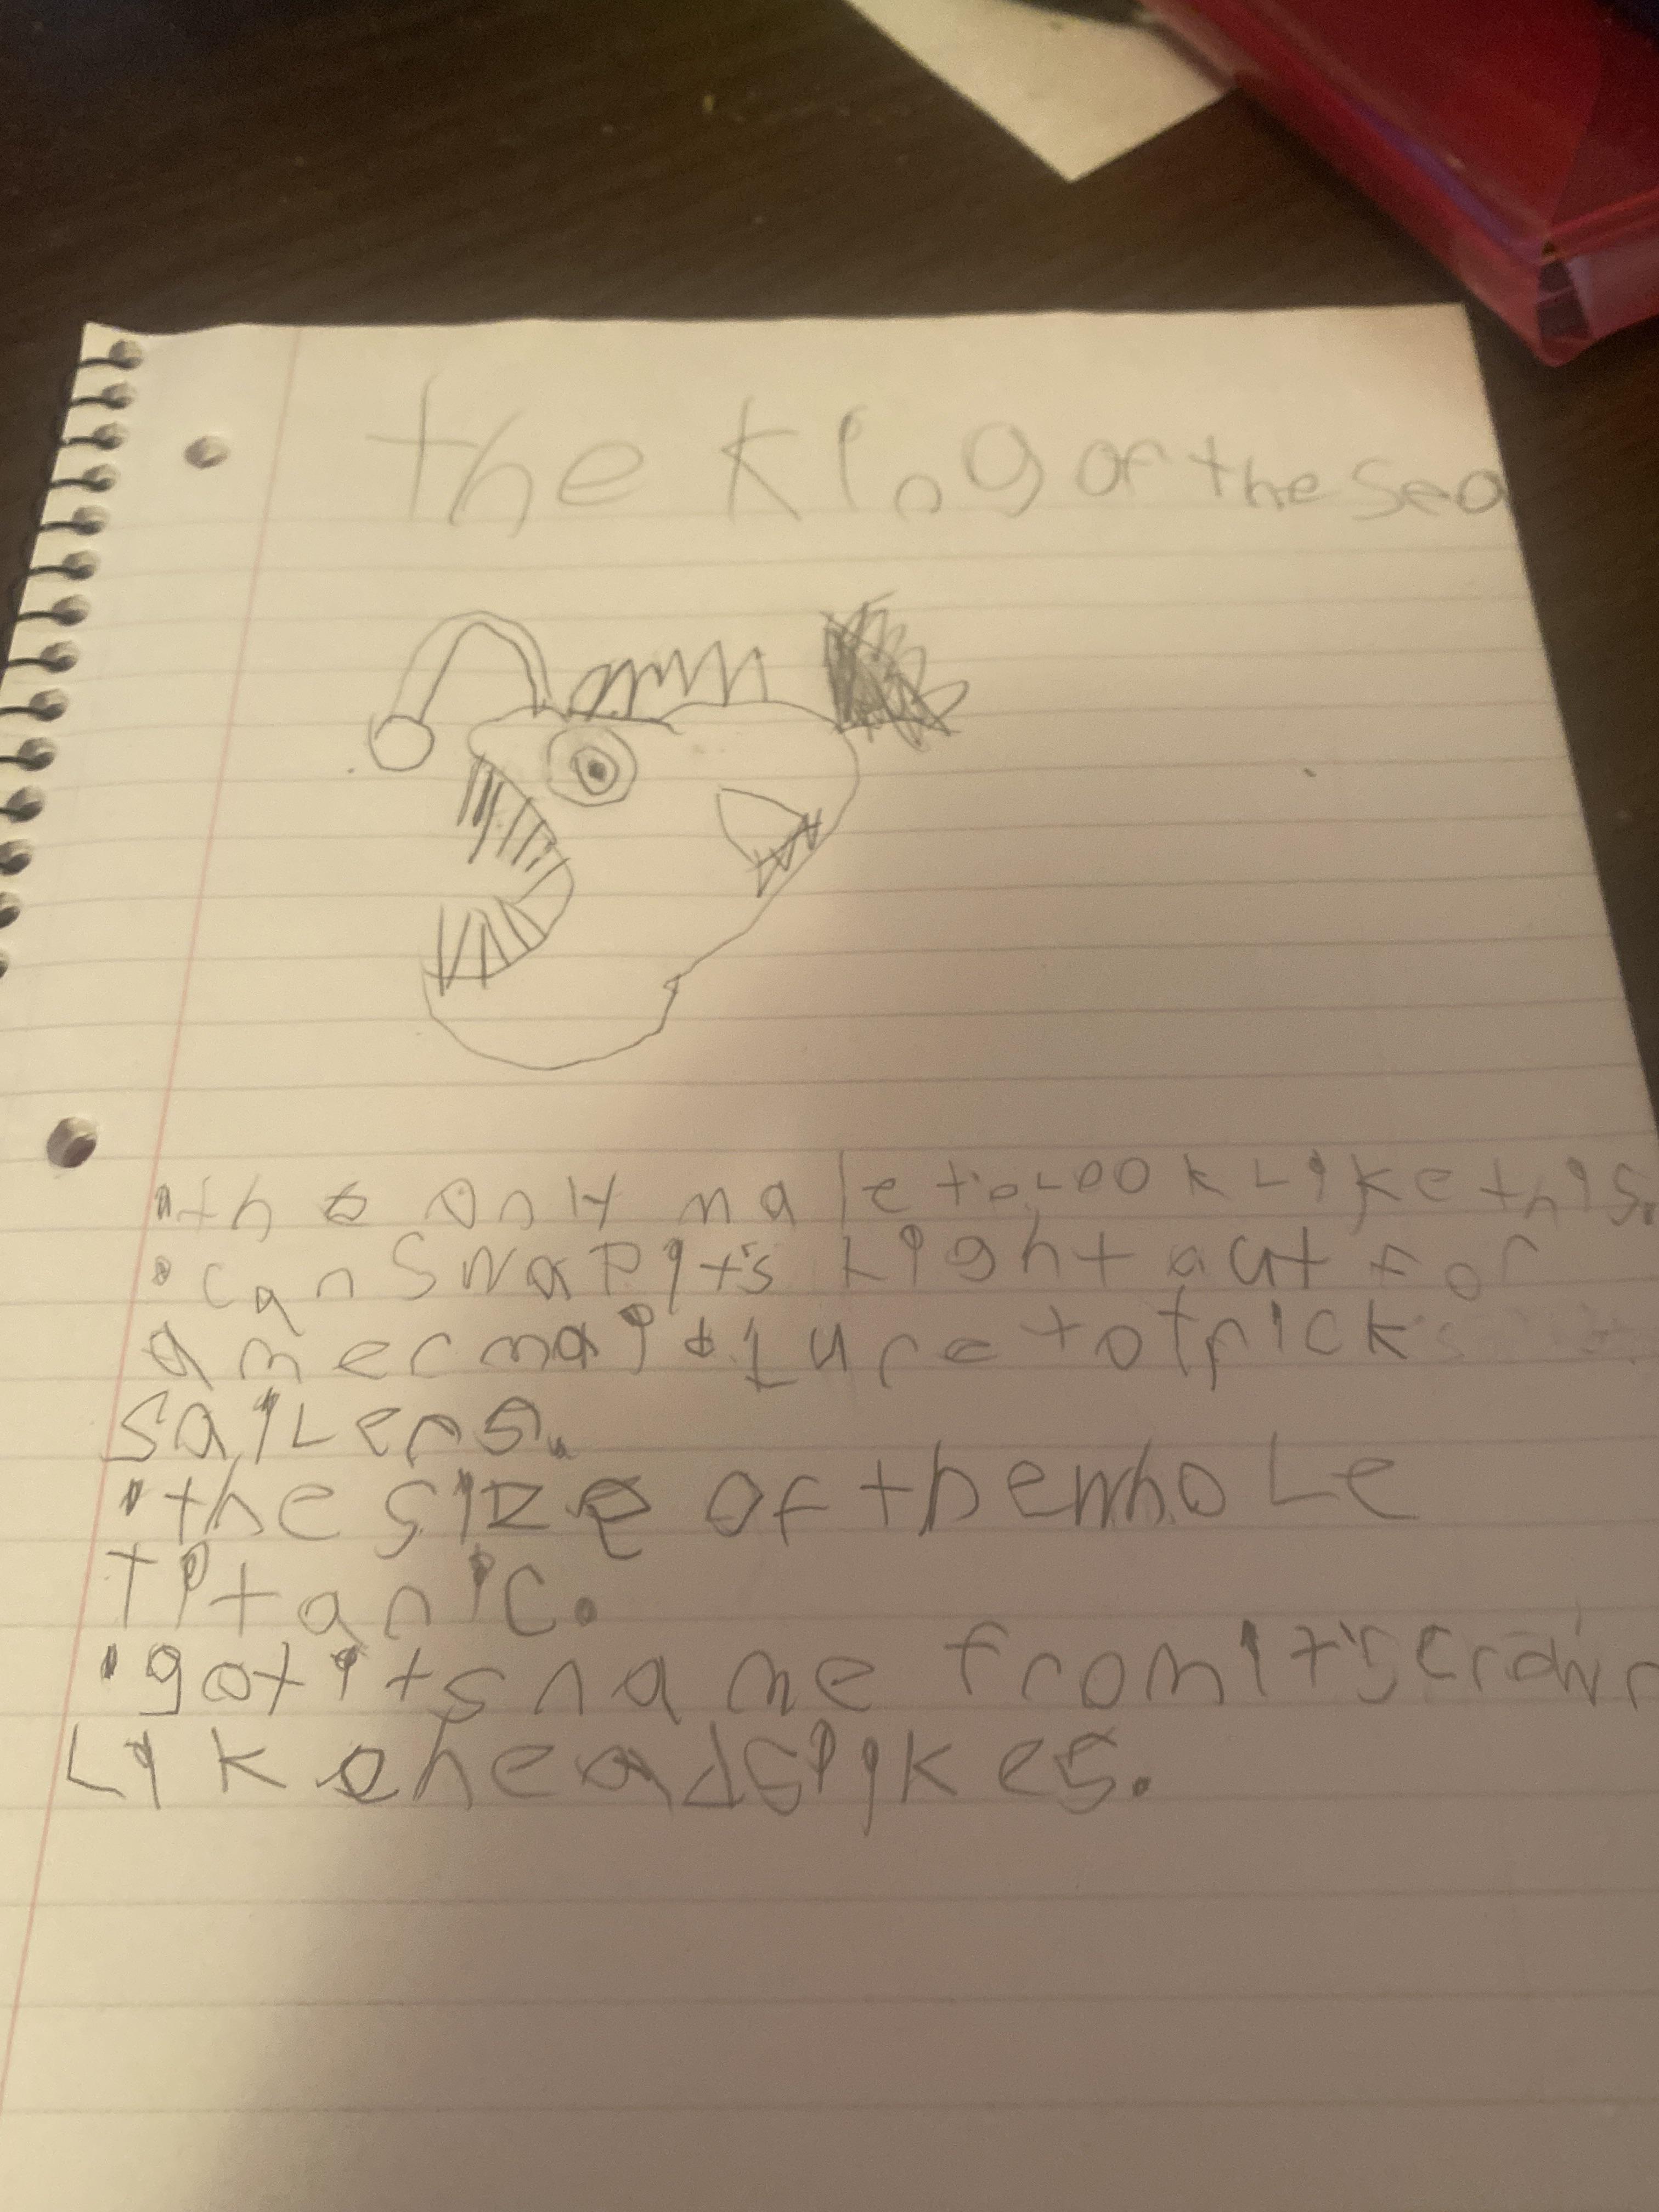 the King of the Sea
• the only male to Look Like this.
• can swap it's Light out for
a mermaid Lure to trick
saiLers.
• the size of the whoLe
Titanic.
• got its name from it's crown
Like head spikes.